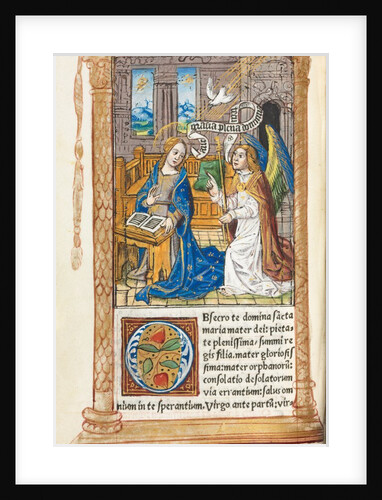 gracia plena
O Bsecro te domina sācta
maria mater dei: pieta-
te plenissima, summi re
gis filia. mater gloriosis
sima: mater orphanorū:
consolatio desolatorum
via errantium: salus om
nium in te sperantium. Virgo ante partū: vir-